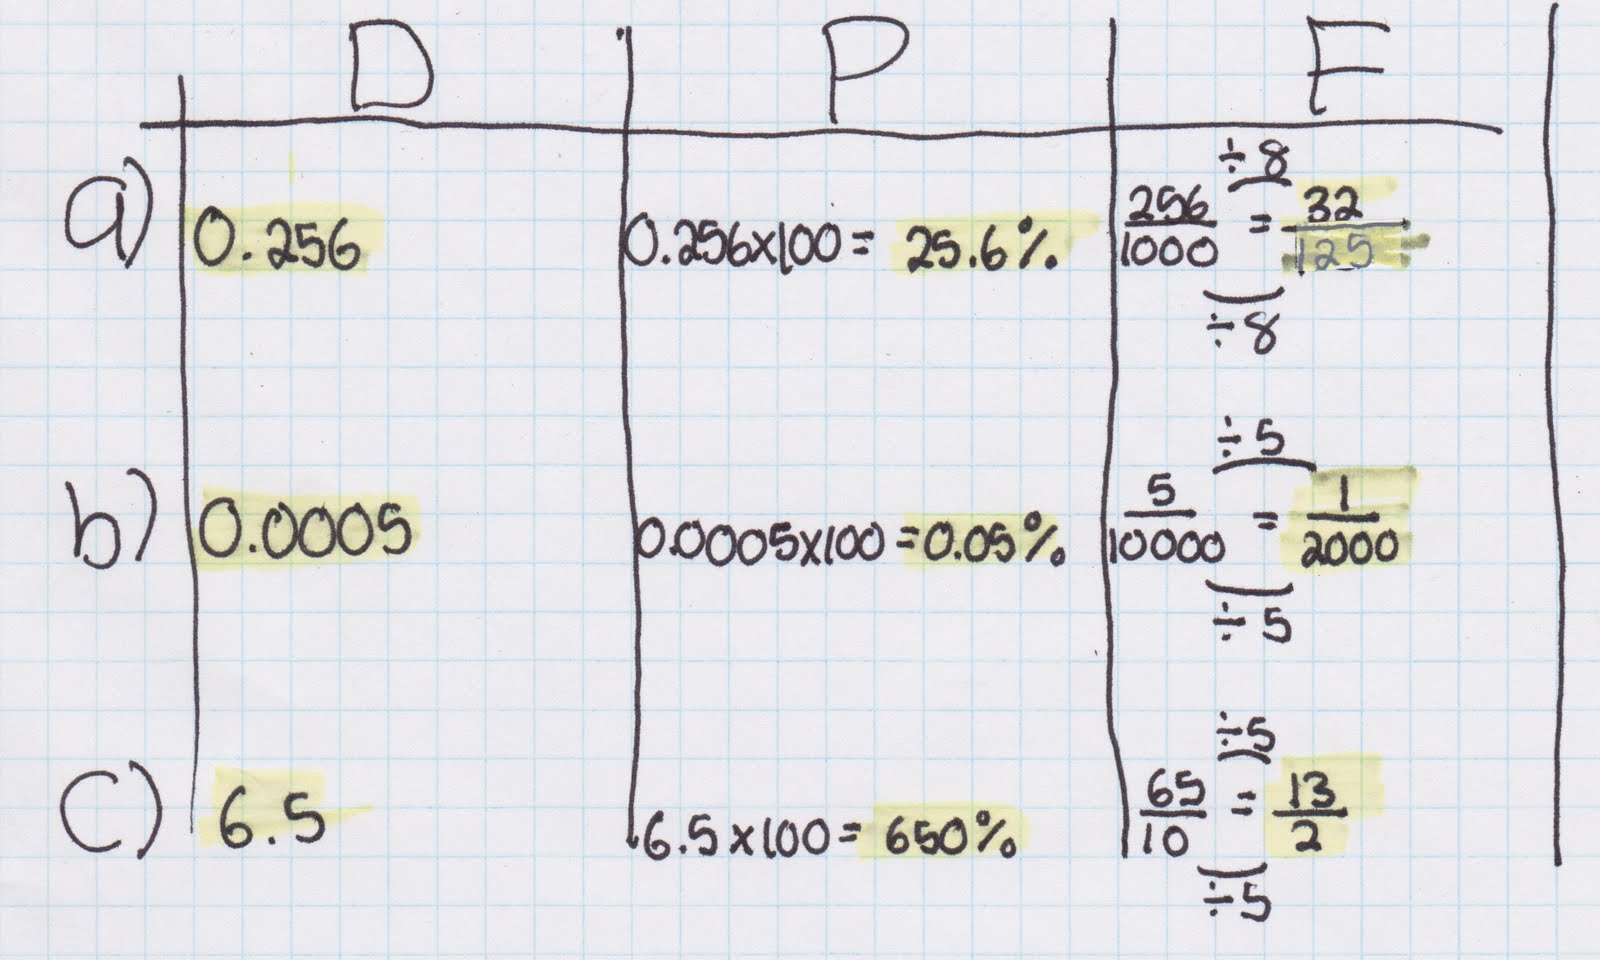 D P F
÷8
a) 0.256 0.256x100= 25.6% 256/1000 = 32/125
÷8
÷5
b) 0.0005 0.0005x100=0.05% 5/10000 = 1/2000
÷5
÷5
c) 6.5 6.5x100= 650% 65/10 = 13/2
÷5